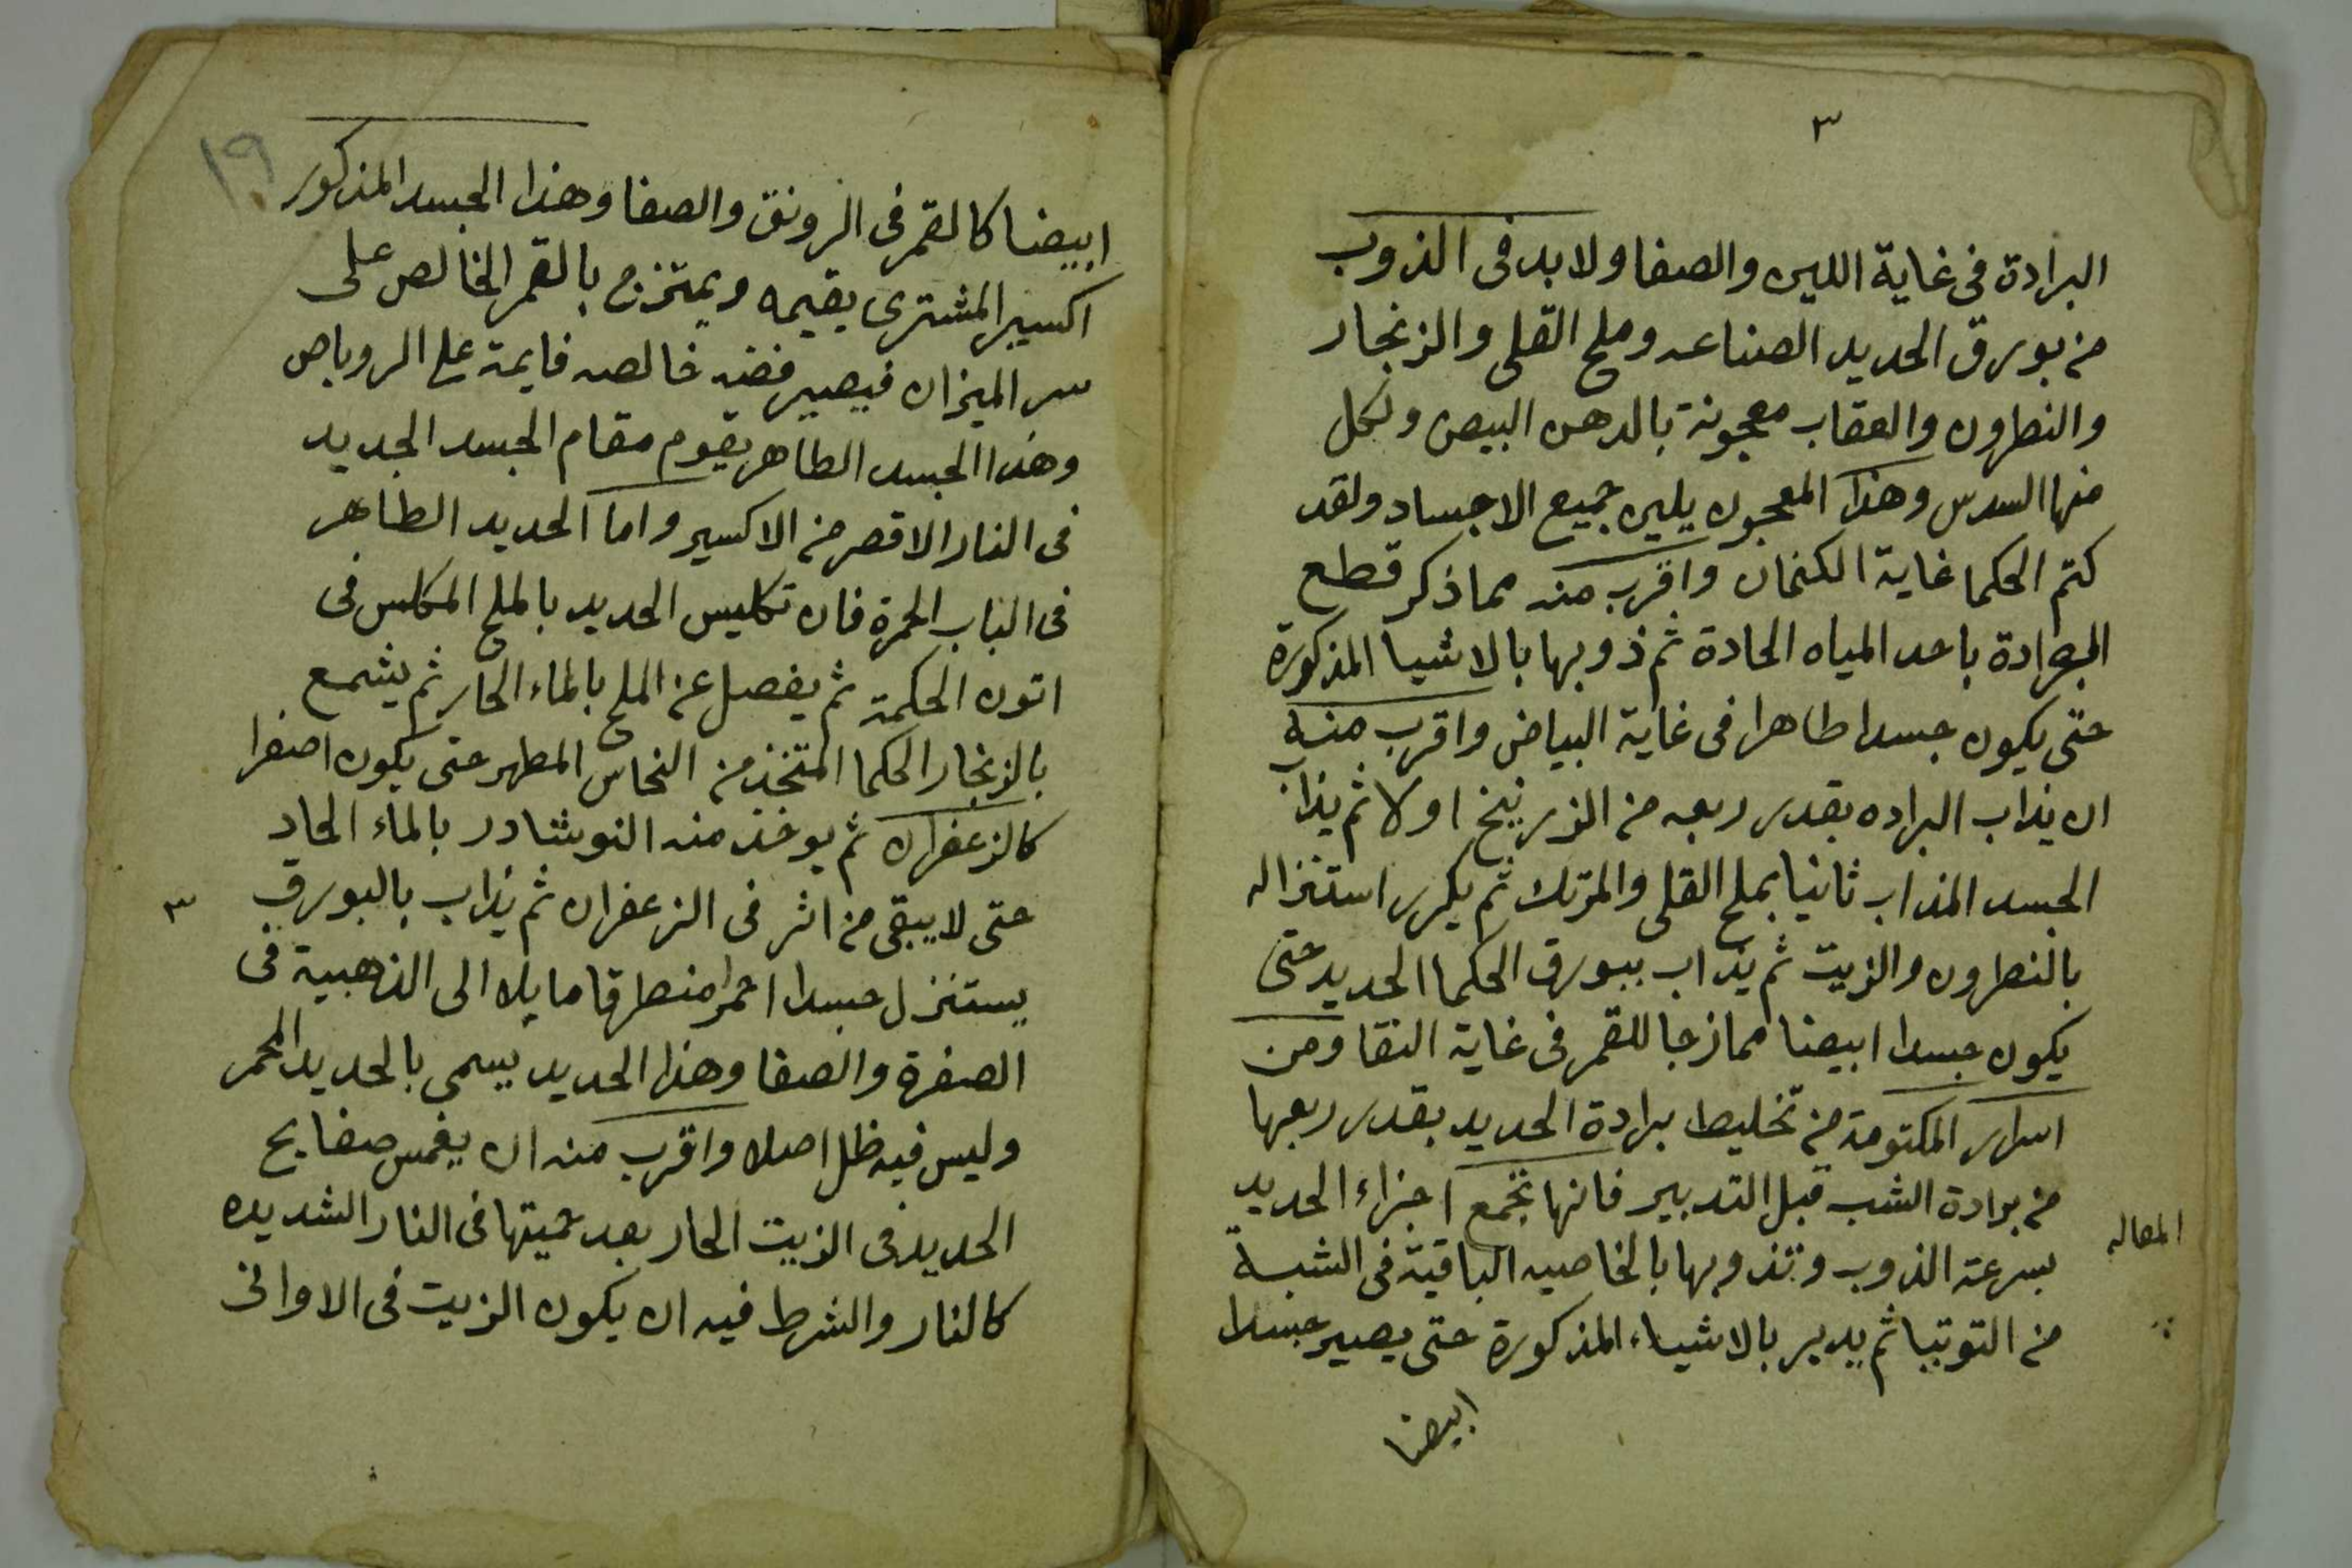 ٣
البرادة فى غاية اللين والصفا ولا بد فى الذوب
من بورق الحديد الصناعه وملح القلى والزنجار
والنطرون والعقاب معجونة بالدهن البيض ولكل
منها السدس وهذا المعجون يلين جميع الاجساد ولقد
كتم الحكما غاية الكتمان واقرب منه مما ذكر قطع
البرادة باحد المياه الحادة ثم ذوبها بالاشيا المذكورة
حتى يكون جسدا طاهرا فى غاية البياض واقرب منه
ان يذاب البراده بقدر ربعه من الزرنيخ اولا ثم يذاب
الجسد المذاب ثانيا بملح القلى والمرتك ثم يكرر استنزاله
بالنطرون والزيت ثم يذاب ببورق الحكما الحديد حتى
يكون جسدا ابيضا ممازجا للقمر فى غاية النقا ومن
اسرار المكتومة من تخليط برادة الحديد بقدر ربعها
من برادة الشب قبل التدبير فانها تجمع اجزاء الحديد
بسرعة الذوب وتذوبها بالخاصيه الباقية فى الشبة
من التوتيا ثم يدبر بالاشياء المذكورة حتى يصير جسدا
ابيضا
١٩
ابيضا كالقمر فى الرونق والصفا وهذا الجسد المذكور
اكسير المشترى يقيمه ويمتزج بالقمر الخالص على
سر الميزان فيصير فضه خالصه قايمة على الروباص
وهذا الجسد الطاهر يقوم مقام الجسد الجديد
فى النار الاقصر من الاكسير واما الحديد الطاهر
فى الباب الحمرة فان تكليس الحديد بالملح المكلس فى
اتون الحكمة ثم يفصل عن الملح بالماء الحار ثم يشمع
بالزنجار الحكما المتخذ من النحاس المطهر حتى يكون اصفرا
كالزعفران ثم يوخذ منه النوشادر بالماء الحاد
حتى لا يبقى من اثر فى الزعفران ثم يذاب بالبورق
٣
يستنزل جسدا احمرا منطرقا مايلا الى الذهبية فى
الصفرة والصفا وهذا الحديد يسمى بالحديد المحمر
وليس فيه ظل اصلا واقرب منه ان يغمس صفايح
الحديد فى الزيت الحار بعد حميتها فى النار الشديده
كالنار والشرط فيه ان يكون الزيت فى الاوانى